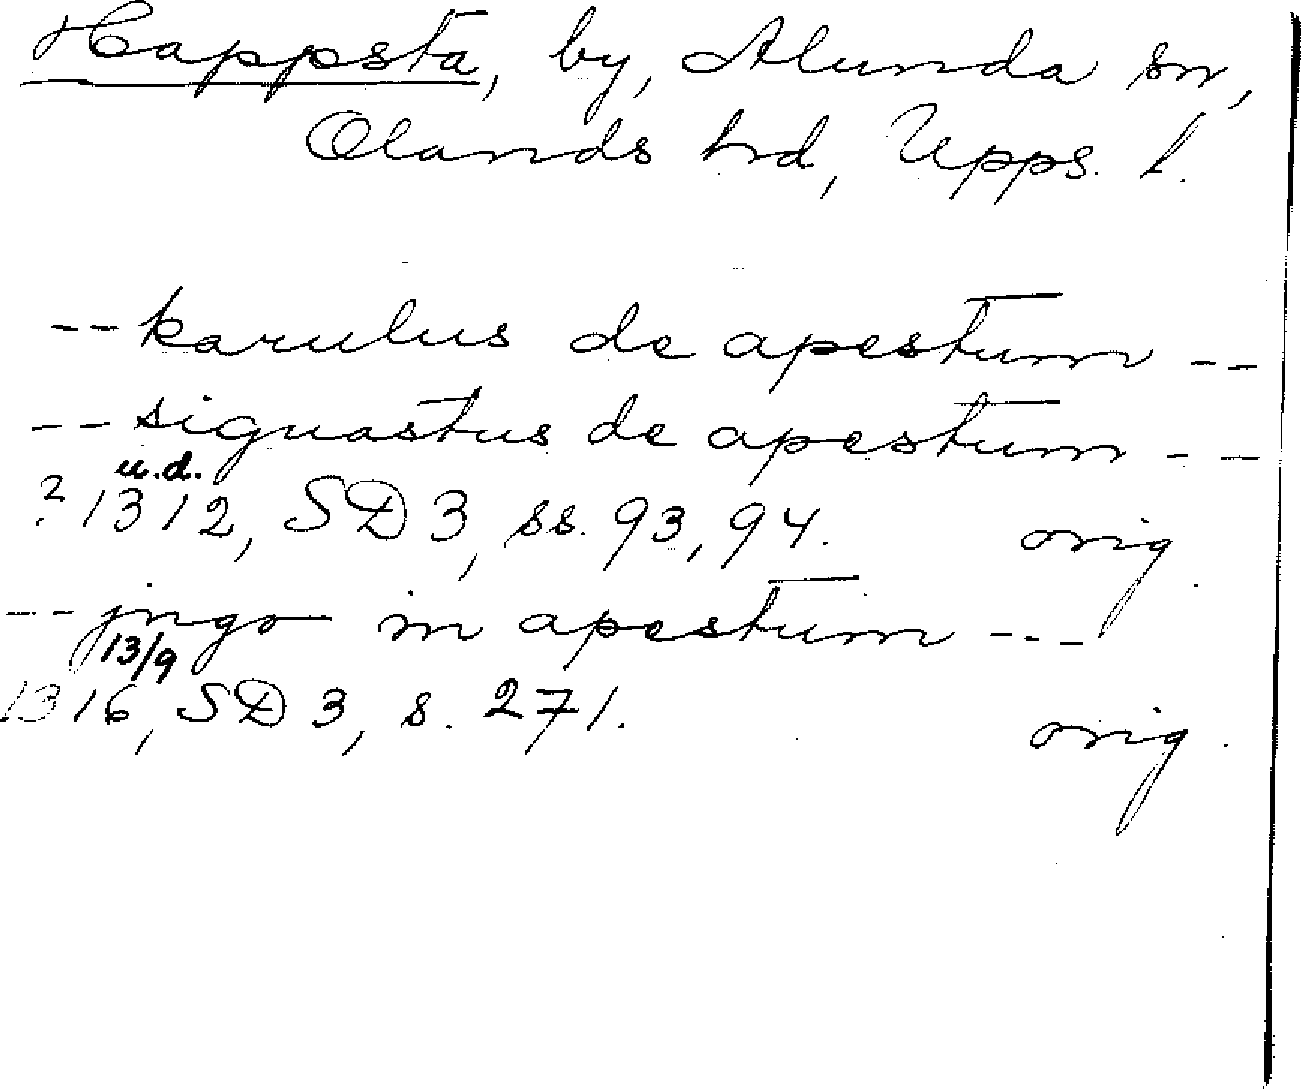 Happsta, by, Alunda sn,
Olands hrd, Upps. l.
-- karulus de apestum --
-- siguastus de apestum --
u.d.
? 1312, SD 3, ss. 93, 94. orig.
-- jngo in apestum ---
13/9
1316, SD 3, s. 271. orig.